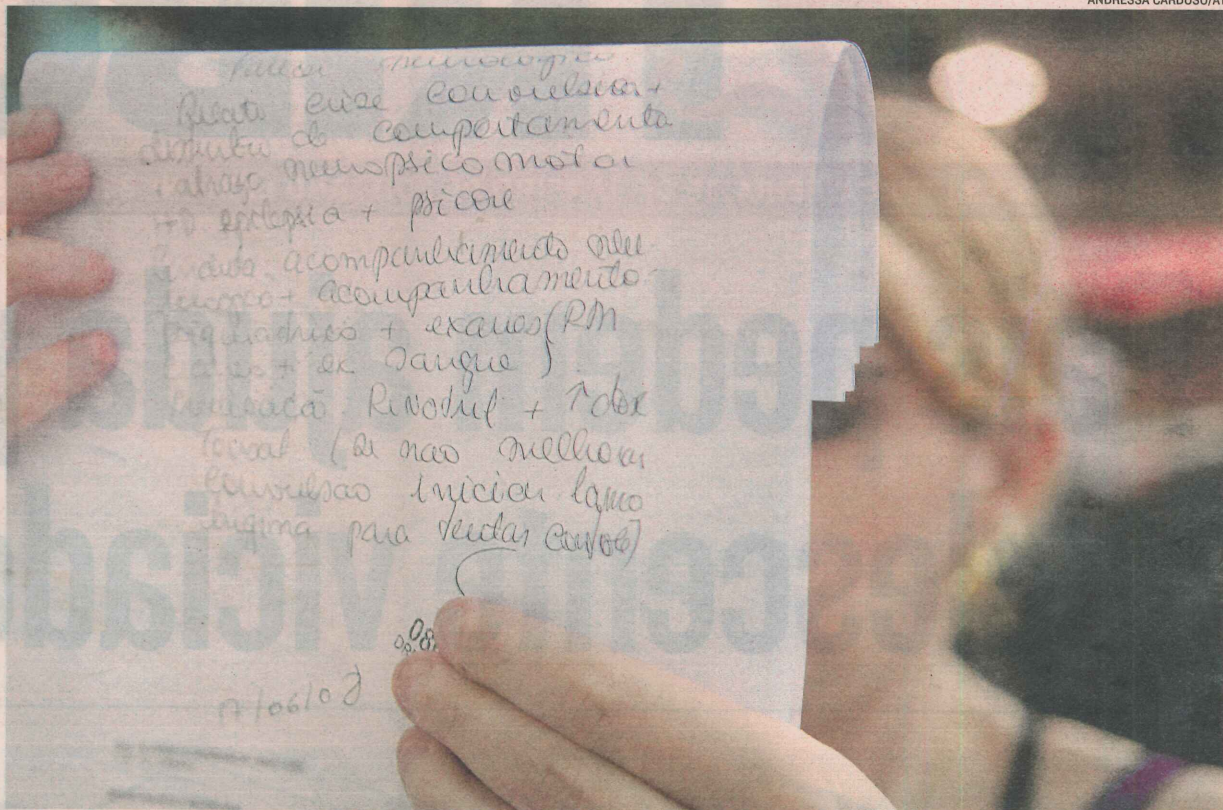 ANDRESSA CARDOSO/AT
Parecer neurológico
Relato crise convulsiva +
distúrbio de comportamento
+ atraso neuropsicomotor
epilepsia + psicose
acompanhamento neu
+ acompanhamento
psiquiátrico + exames (RM
+ ex sangue)
Rivotril + ↑ dose
(se não melhorar
convulsão iniciar lamo
trigina para tentar controle)
17/06/08